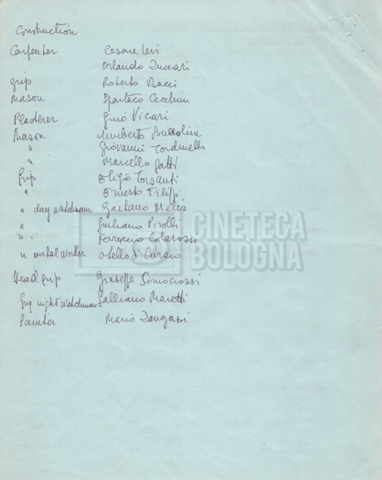 Construction
Carpenter Cesare
Orlando
grip Roberto Bacci
Mason Spartaco Cecchini
Plasterer Gino Vicari
Mason Umberto
" Giovanni Tordinelli
" Marcello Gatti
Grip Torsanti
" Ernesto Filippi
" day watchman Gaetano Melis
" Giuliano
" Ferruccio Colarossi
" metal worker Otello
Head grip Giuseppe Simocrossi
Grip night watchman Galliano Maretti
Painter Mario
CINETECA
BOLOGNA